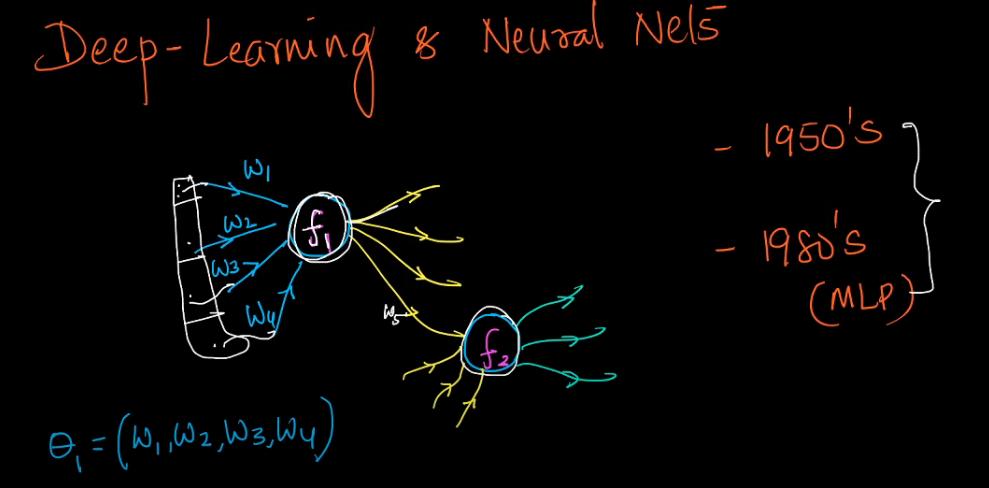 Deep-Learning & Neural Nets
- 1950's
- 1980's
(MLP)
w1
w2
w3
w4
f1
w5
f2
θ1 = (w1, w2, w3, w4)